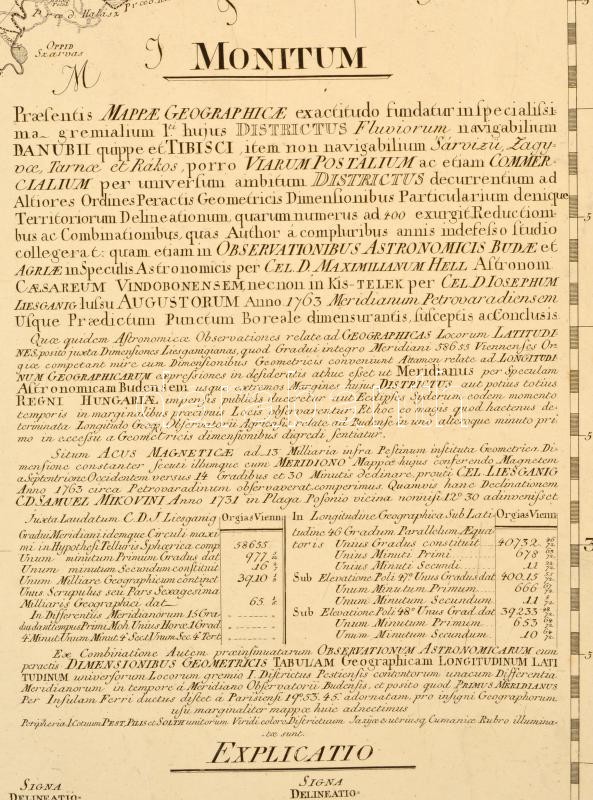 Præd. Halász
Præd.
Oppid
Szarvas
M
MONITUM
Præsentis MAPPÆ GEOGRAPHICÆ exactitudo fundatur in specialissi-
ma gremialium I.tæ hujus DISTRICTUS Fluviorum navigabilium
DANUBII quippe et TIBISCI, item non navigabilium Sárvizű, Zagy-
væ, Tarnæ et Rákos, porro VIARUM POSTALIUM ac etiam COMMER-
CIALIUM per universum ambitum DISTRICTUS decurrentium ad
Altiores Ordines Peractis Geometricis Dimensionibus Particularium denique
Territoriorum Delineationum, quarum numerus ad 400 exurgit Reduction-
bus ac Combinationibus, quas Author a compluribus annis indefesso studio
collegerat: quam etiam in OBSERVATIONIBUS ASTRONOMICIS BUDÆ et
AGRIÆ in Speculis Astronomicis per CEL. D. MAXIMILIANUM HELL Astronom
CÆSAREUM VINDOBONENSEM, nec non in KIS-TELEK per CEL. D. IOSEPHUM
LIESGANIG Iussu AUGUSTORUM Anno 1763 Meridianum Petrovaradiensem
Usque Prædictum Punctum Boreale dimensurantis, susceptis ac Conclusis.
Quæ quidem Astronomicæ Observationes relate ad GEOGRAPHICAS Locorum LATITUDI-
NES, posito juxta Dimensiones Liesganigianas, quod Gradui integro Meridiani 58655 Viennenses Or-
giæ competant mire cum Dimensionibus Geometricis conveniunt Attamen relate ad LONGITUDI-
NUM GEOGRAPHICARUM expressiones in desideratis athuc esset ut Meridianus per Speculam
Astronomicam Budensem usque extremos Margines hujus DISTRICTUS aut potius totius
REGNI HUNGARIÆ impensis publicis duceretur aut Eclipses Syderum eodem momento
temporis in marginalibus præcipuis Locis observarentur. Et hoc eo magis quod hactenus de-
terminata Longitudo Geogr. Observatorii Agriensis relate ad Budensem uno alteroque minuto pri-
mo in excessu a Geometricis dimensionibus digredi sentiatur.
Situm ACUS MAGNETICÆ ad 13 Milliaria infra Pestinum instituta Geometrica Di-
mensione constanter secuti illumque cum MERIDIONO Mappæ hujus conferendo Magnetem
a Septentrione Occidentem versus 14 Gradibus et 30 Minutis declinare, prouti CEL. LIESGANIG
Anno 1763 circa Petrovaradinum observaverat, comperimus. Quamvis hanc Declinationem
C.D. SAMUEL MIKOVINI Anno 1731 in Plaga Posonio vicina nonnisi 12° 30 adinvenisset
Juxta Laudatum C.D.J. Liesganig Orgias Vienn
Gradu Meridiani idemque Circuli maxi
mi in Hypothesi Telluris Sphærica comp 58655
Unum minutum Primum Gradus dat 977
Unum minutum Secundum constituit 16
Unum Milliare Geographicum continet 3910
Unus Scrupulus seu Pars Sexagesima
Milliaris Geographici dat 65
In Differentiis Meridianorum 15 Gra-
dus dant tempus Primi Mob. Unius Horæ. 1 Grad.
4 Minut. Unum Minut. 4 Sec. 1 Unum Sec. 4 Tert.
In Longitudine Geographica Sub Lati- Orgias Vienn
tudine 46 Gradum Parallelum Æqua-
toris Unum Gradus constituit 40732
Unius Minuti Primi 678
Unius Minuti Secundi 11
Sub Elevatione Poli 47° Unus Gradus dat 40015
Unum Minutum Primum 666
Unum Minutum Secundum 11
Sub Elevatione Poli 48° Unus Grad. dat 39233
Unum Minutum Primum 653
Unum Minutum Secundum 10
Ex Combinatione Autem præinsinuatarum OBSERVATIONUM ASTRONOMICARUM cum
peractis DIMENSIONIBUS GEOMETRICIS TABULAM Geographicam LONGITUDINUM LATI
TUDINUM universorum Locorum gremio I. Districtus Pestiensis contentorum unacum Differentia
Meridianorum in tempore á Meridiano Observatorii Budensis, et posito quod PRIMUS MERIDIANUS
Per Insulam Ferri ductus disset á Parisiensi 19°. 53. 45″. adornatam, pro insigni Geographorum
usu marginaliter mappæ huic adnectimus
Peripheria I. Cottuum PEST, PILIS et SOLTH unitorum Viridi colore, Districtuum Jazijæ et utriusq. Cumaniæ Rubro illumina-
tæ sunt.
EXPLICATIO
SIGNA
DELINEATIO-
SIGNA
DELINEATIO-
5
5
3
5